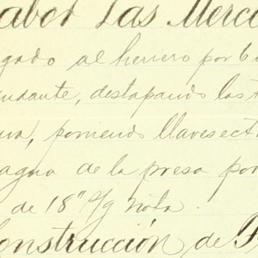 abor Las Merc
gado al herrero por 6
ndante, destapando las
ua, poniendo llaves ect
agua de la presa por
de 18" s/g nota.
onstrucción de F